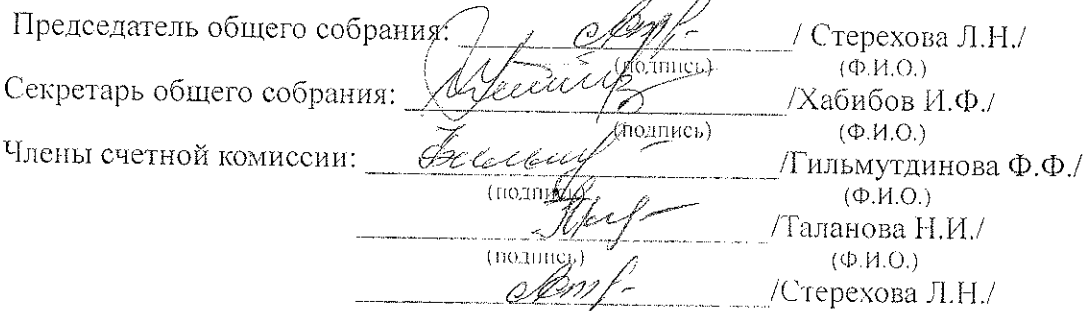 Председатель общего собрания: / Стерехова Л.Н./
(подпись) (Ф.И.О.)
Секретарь общего собрания: /Хабибов И.Ф./
(подпись) (Ф.И.О.)
Члены счетной комиссии: /Гильмутдинова Ф.Ф./
(подпись) (Ф.И.О.)
/Таланова Н.И./
(подпись) (Ф.И.О.)
/Стерехова Л.Н./